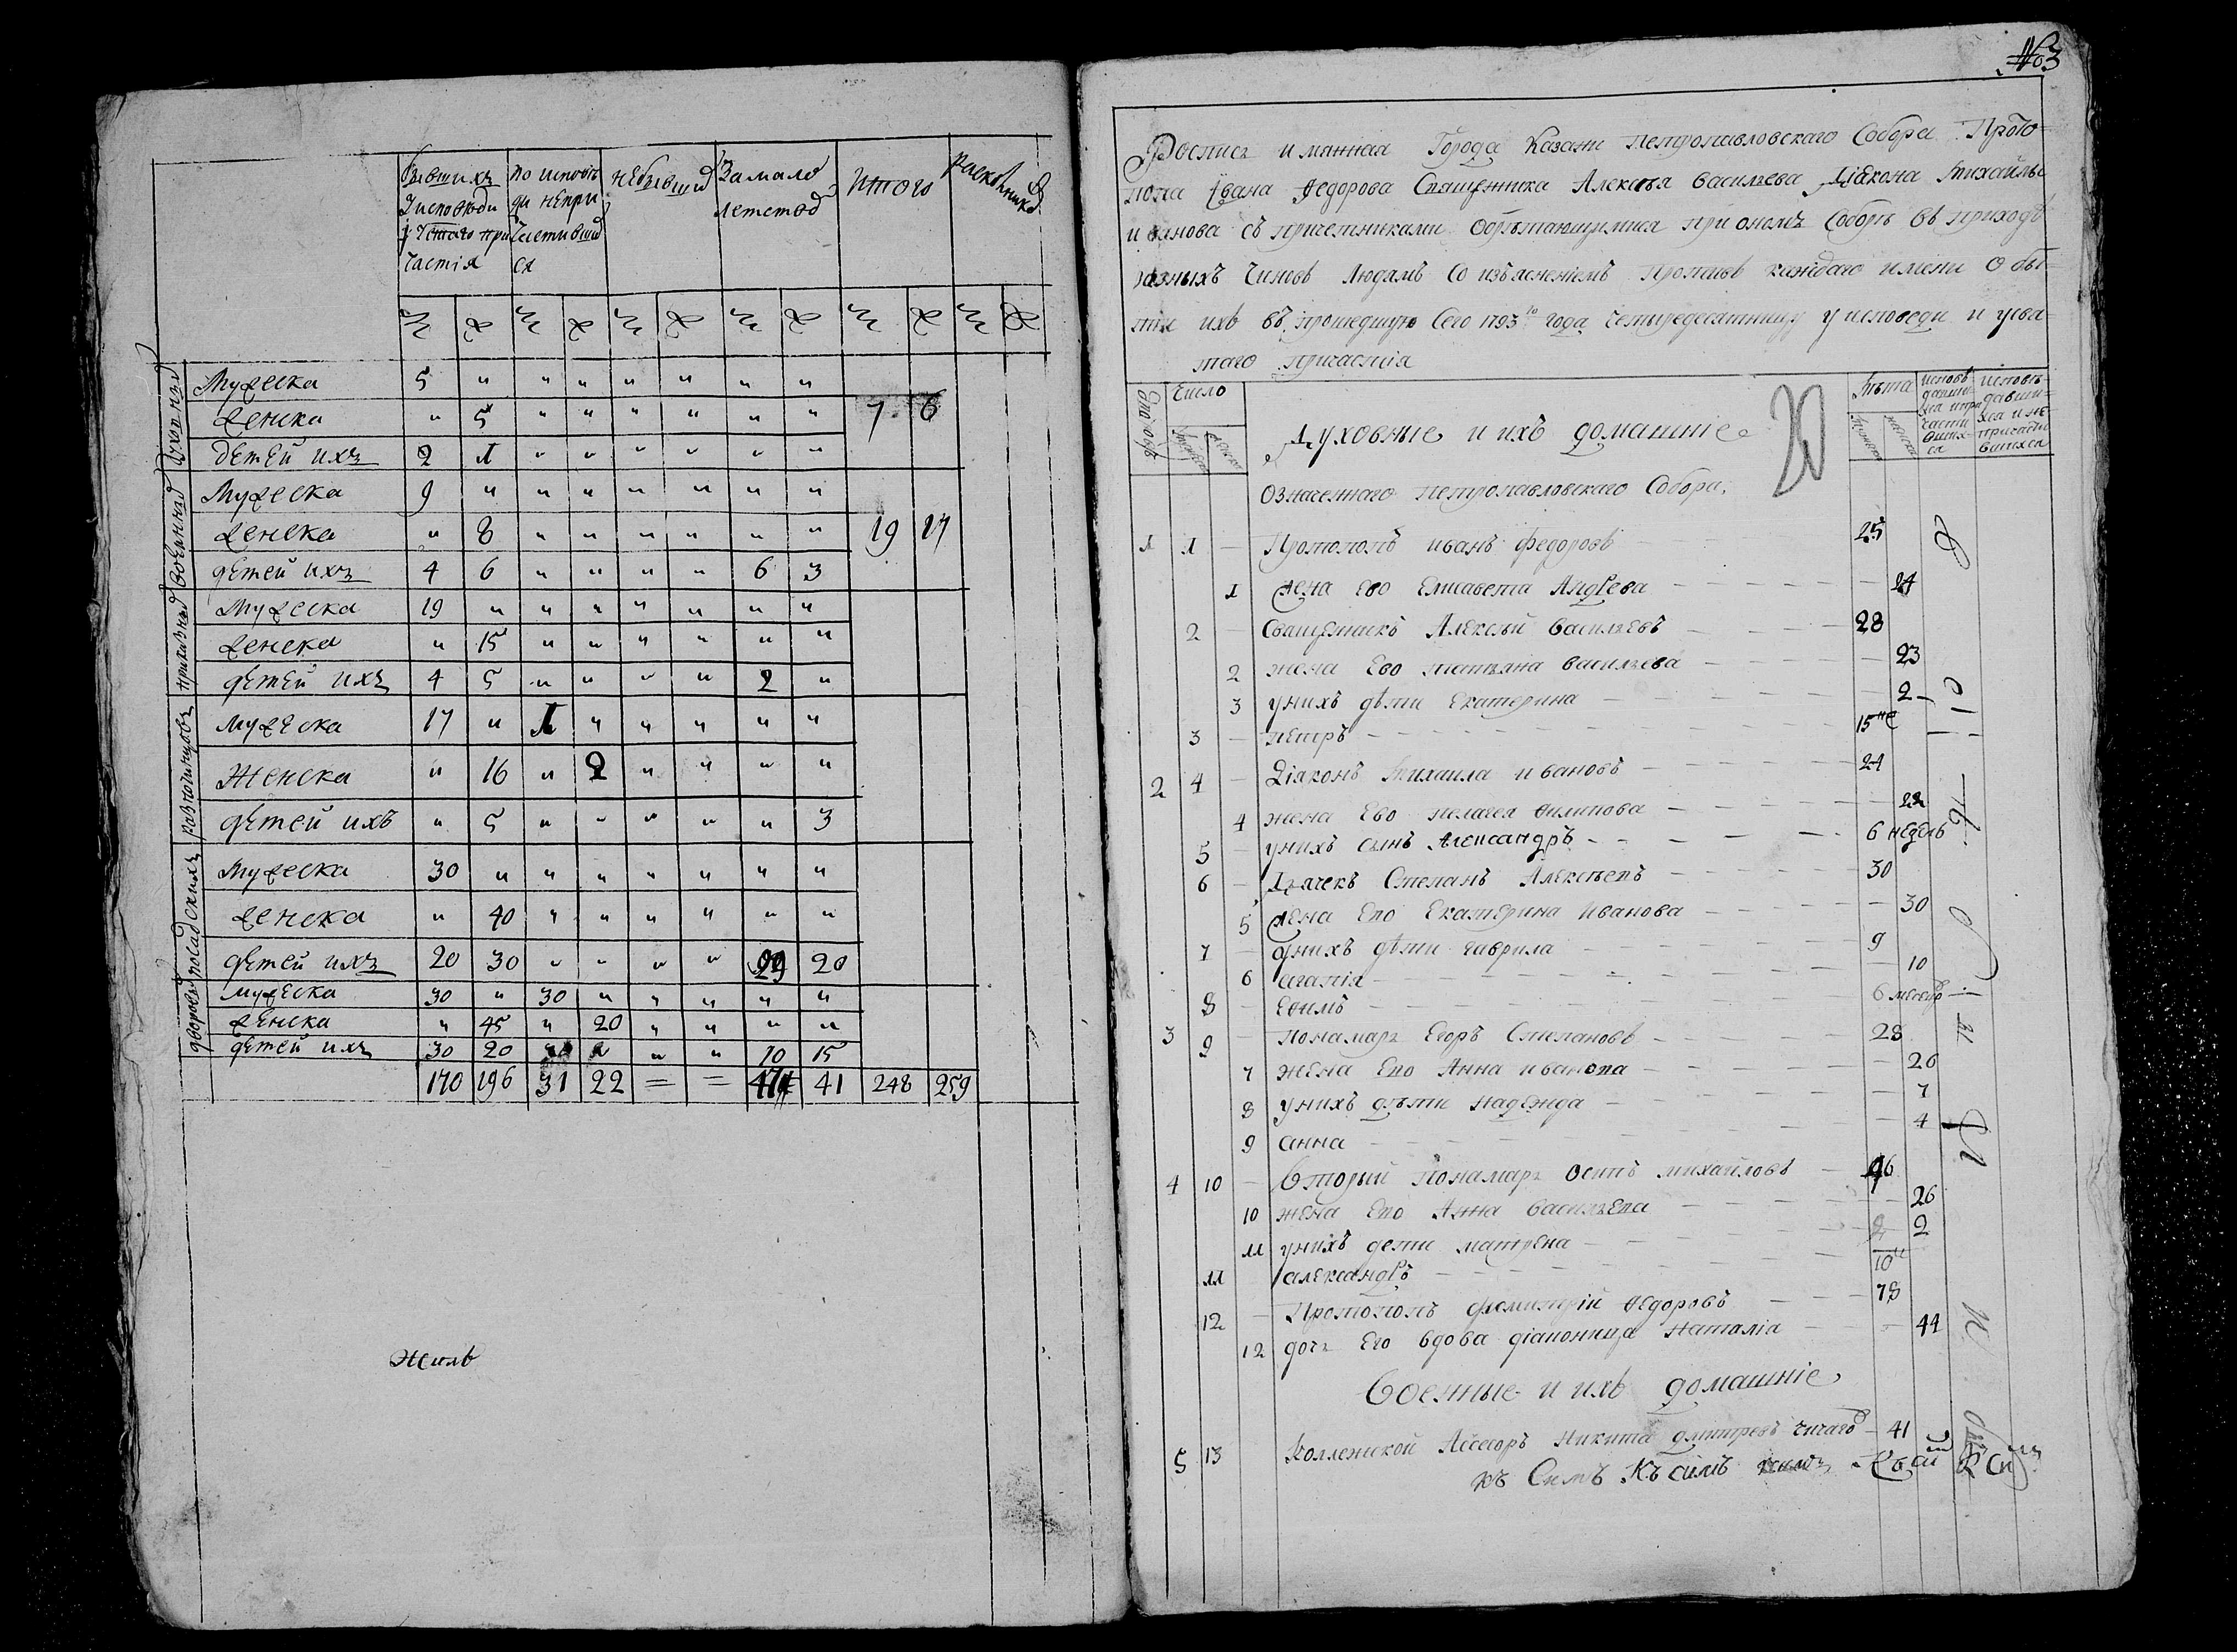 бывшихъ
У исповѣди
і с҃таго при
частія
по исповѣ
ди непри
частивших
ся
небывших
За мало
летством
Итого
раскольников
м ж м ж м ж м ж м ж м ж
Духовных
Мужеска 5 " " " " " " "
женска " 5 " " " " " "
детей ихъ 2 1 " " " " " "
7 6
военных
Мужеска 9 " " " " " " "
женска " 8 " " " " " "
детей ихъ 4 6 " " " " 6 3
19 17
приказных
мужеска 19 " " " " " " "
женска " 15 " " " " " "
детей ихъ 4 5 " " " " 2 "
разночинцовъ
мужеска 17 " 1 " " " " "
женска " 16 " 2 " " " "
детей ихъ " 5 " " " " " 3
посадскихъ
Мужеска 30 " " " " " " "
женска " 40 " " " " " "
детей ихъ 20 30 " " " " 29 20
дворовых
мужеска 30 " 30 " " " " "
женска " 45 " 20 " " " "
детей ихъ 30 20 " " " " 10 15
170 196 31 22 = = 47 41 248 259
№ 3
Роспись имянная Города Казани Петропавловскаго Собора Прото
попа Ивана Федорова Священника Алексѣя Васильева Діакона Михайлы
Иванова съ причетниками обрѣтающимися при ономъ Соборѣ въ приходѣ
разныхъ чиновъ людямъ со изъяснениемъ противъ каждаго имени о бы
тіи ихъ въ прошедшую сего 1793го года четыредесятницу у исповеди и у свя
таго причастія
Число
Лѣта
исповѣ
давши
хся и при
части
вших
ся
исповѣ
давши
хся и не
причасти
вшихся
Духовные и ихъ домашние
20
Означенного Петропавловскаго Собора
1 1 Протопопъ Иванъ Федоровъ 25
1 жена Ево Елисавета Андрева 24
2 Священникъ Алексѣй Васильевъ 28
2 жена Ево Татьяна Васильева 23
3 у нихъ дѣти Екатерина 2
3 Петръ 15 не
2 4 Діаконъ Михаила Ивановъ 24
4 жена Ево Пелагея Филипова 22
5 у нихъ сынъ Александръ 6 недель
6 Дьячекъ Степанъ Алексѣевъ 30
5 жена Ево Екатерина Иванова 30
7 у нихъ дѣти Гаврила 9
6 Агапія 10
8 Ефимъ 6 месецо
3 9 Пономарь Егоръ Степановъ 28
7 жена Ево Анна Иванова 26
8 у нихъ дѣти Надежда 7
9 Анна 4
4 10 Вторый Пономарь Осипъ Михайловъ 46
10 жена Ево Анна Васильева 26
11 у нихъ дети Матрена 2
11 Александръ 10
12 Протопопъ Димитрій Федоровъ 78
12 дочь Его вдова діаконица Наталія 44
Военные и ихъ домашніе
5 13 Коллежской Ассесоръ Никита Дмитревъ Чичагов 41
къ Симъ Къ симъ